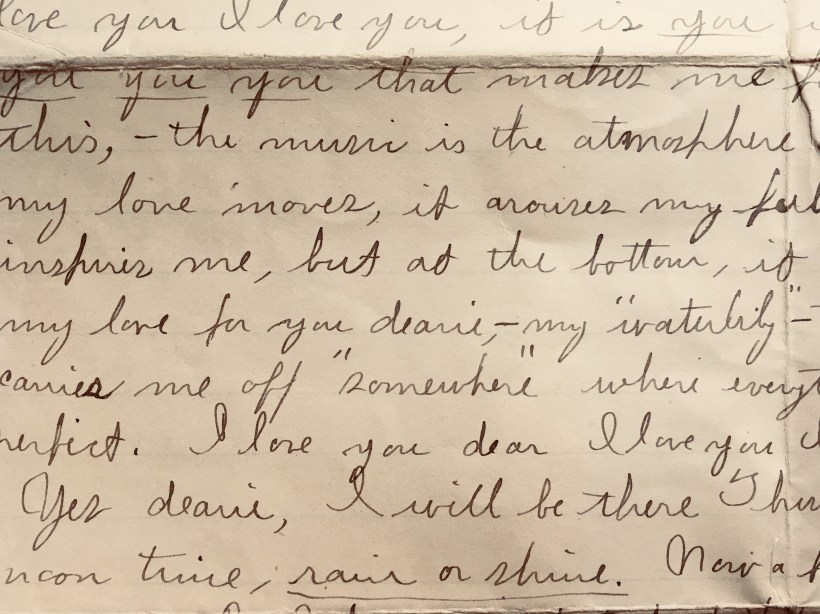 love you I love you, it is you
you you you that makes me
this, – the music is the atmosphere
my love moves, it arouses my
inspires me, but at the bottom, it
my love for you dearie, – my "waterlily" –
carries me off "somewhere" where
perfect. I love you dear I love you
Yes dearie, I will be there
noon time, rain or shine. Now a